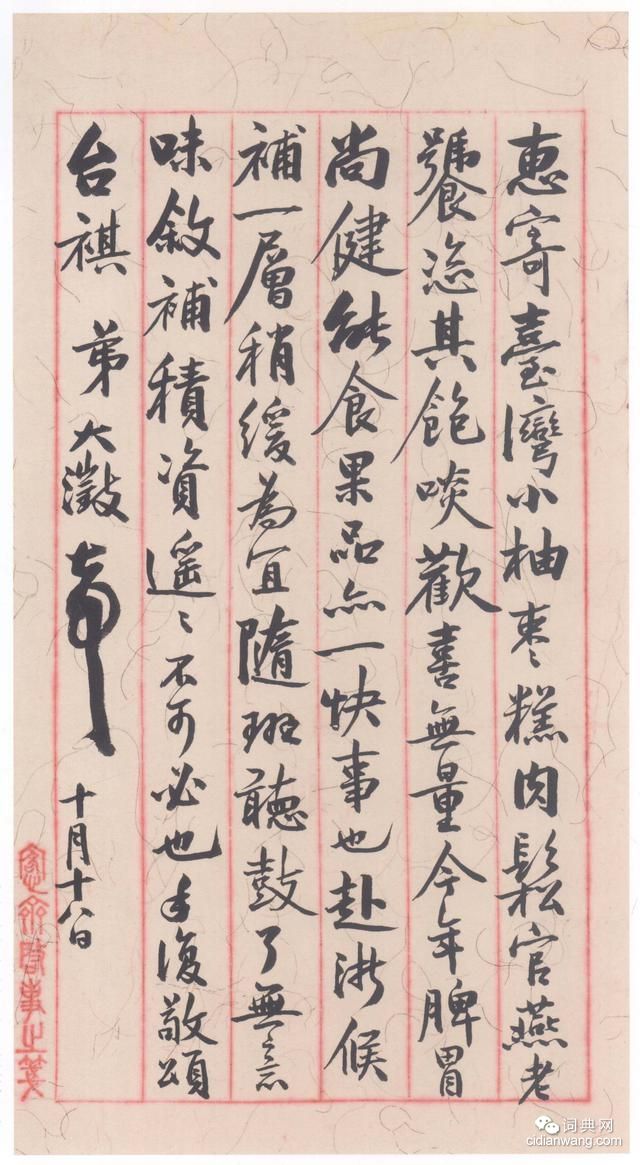 惠寄臺灣小柚枣糕肉鬆官燕老
饕恣其飽啖歡喜無量今年脾胃
尚健能食果品亦一快事也赴浙候
補一層稍緩為宜隨班聽鼓了無意
味敘補積資遥〻不可必也手復敬頌
台祺 弟大澂
十月十八日
愙齋啓事之箋
词典网
cidianwang.com